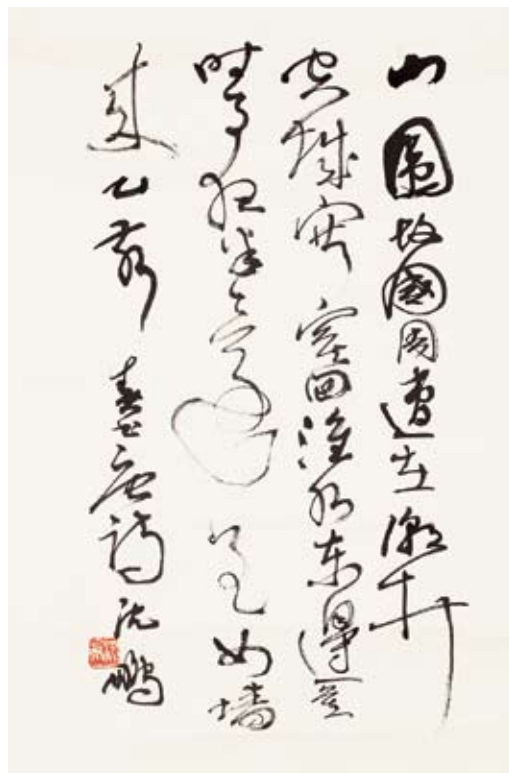 山圍故國周遭在潮打
空城寂寞回淮水東邊舊
時月夜深還過女墻
来乙書唐詩沈鵬